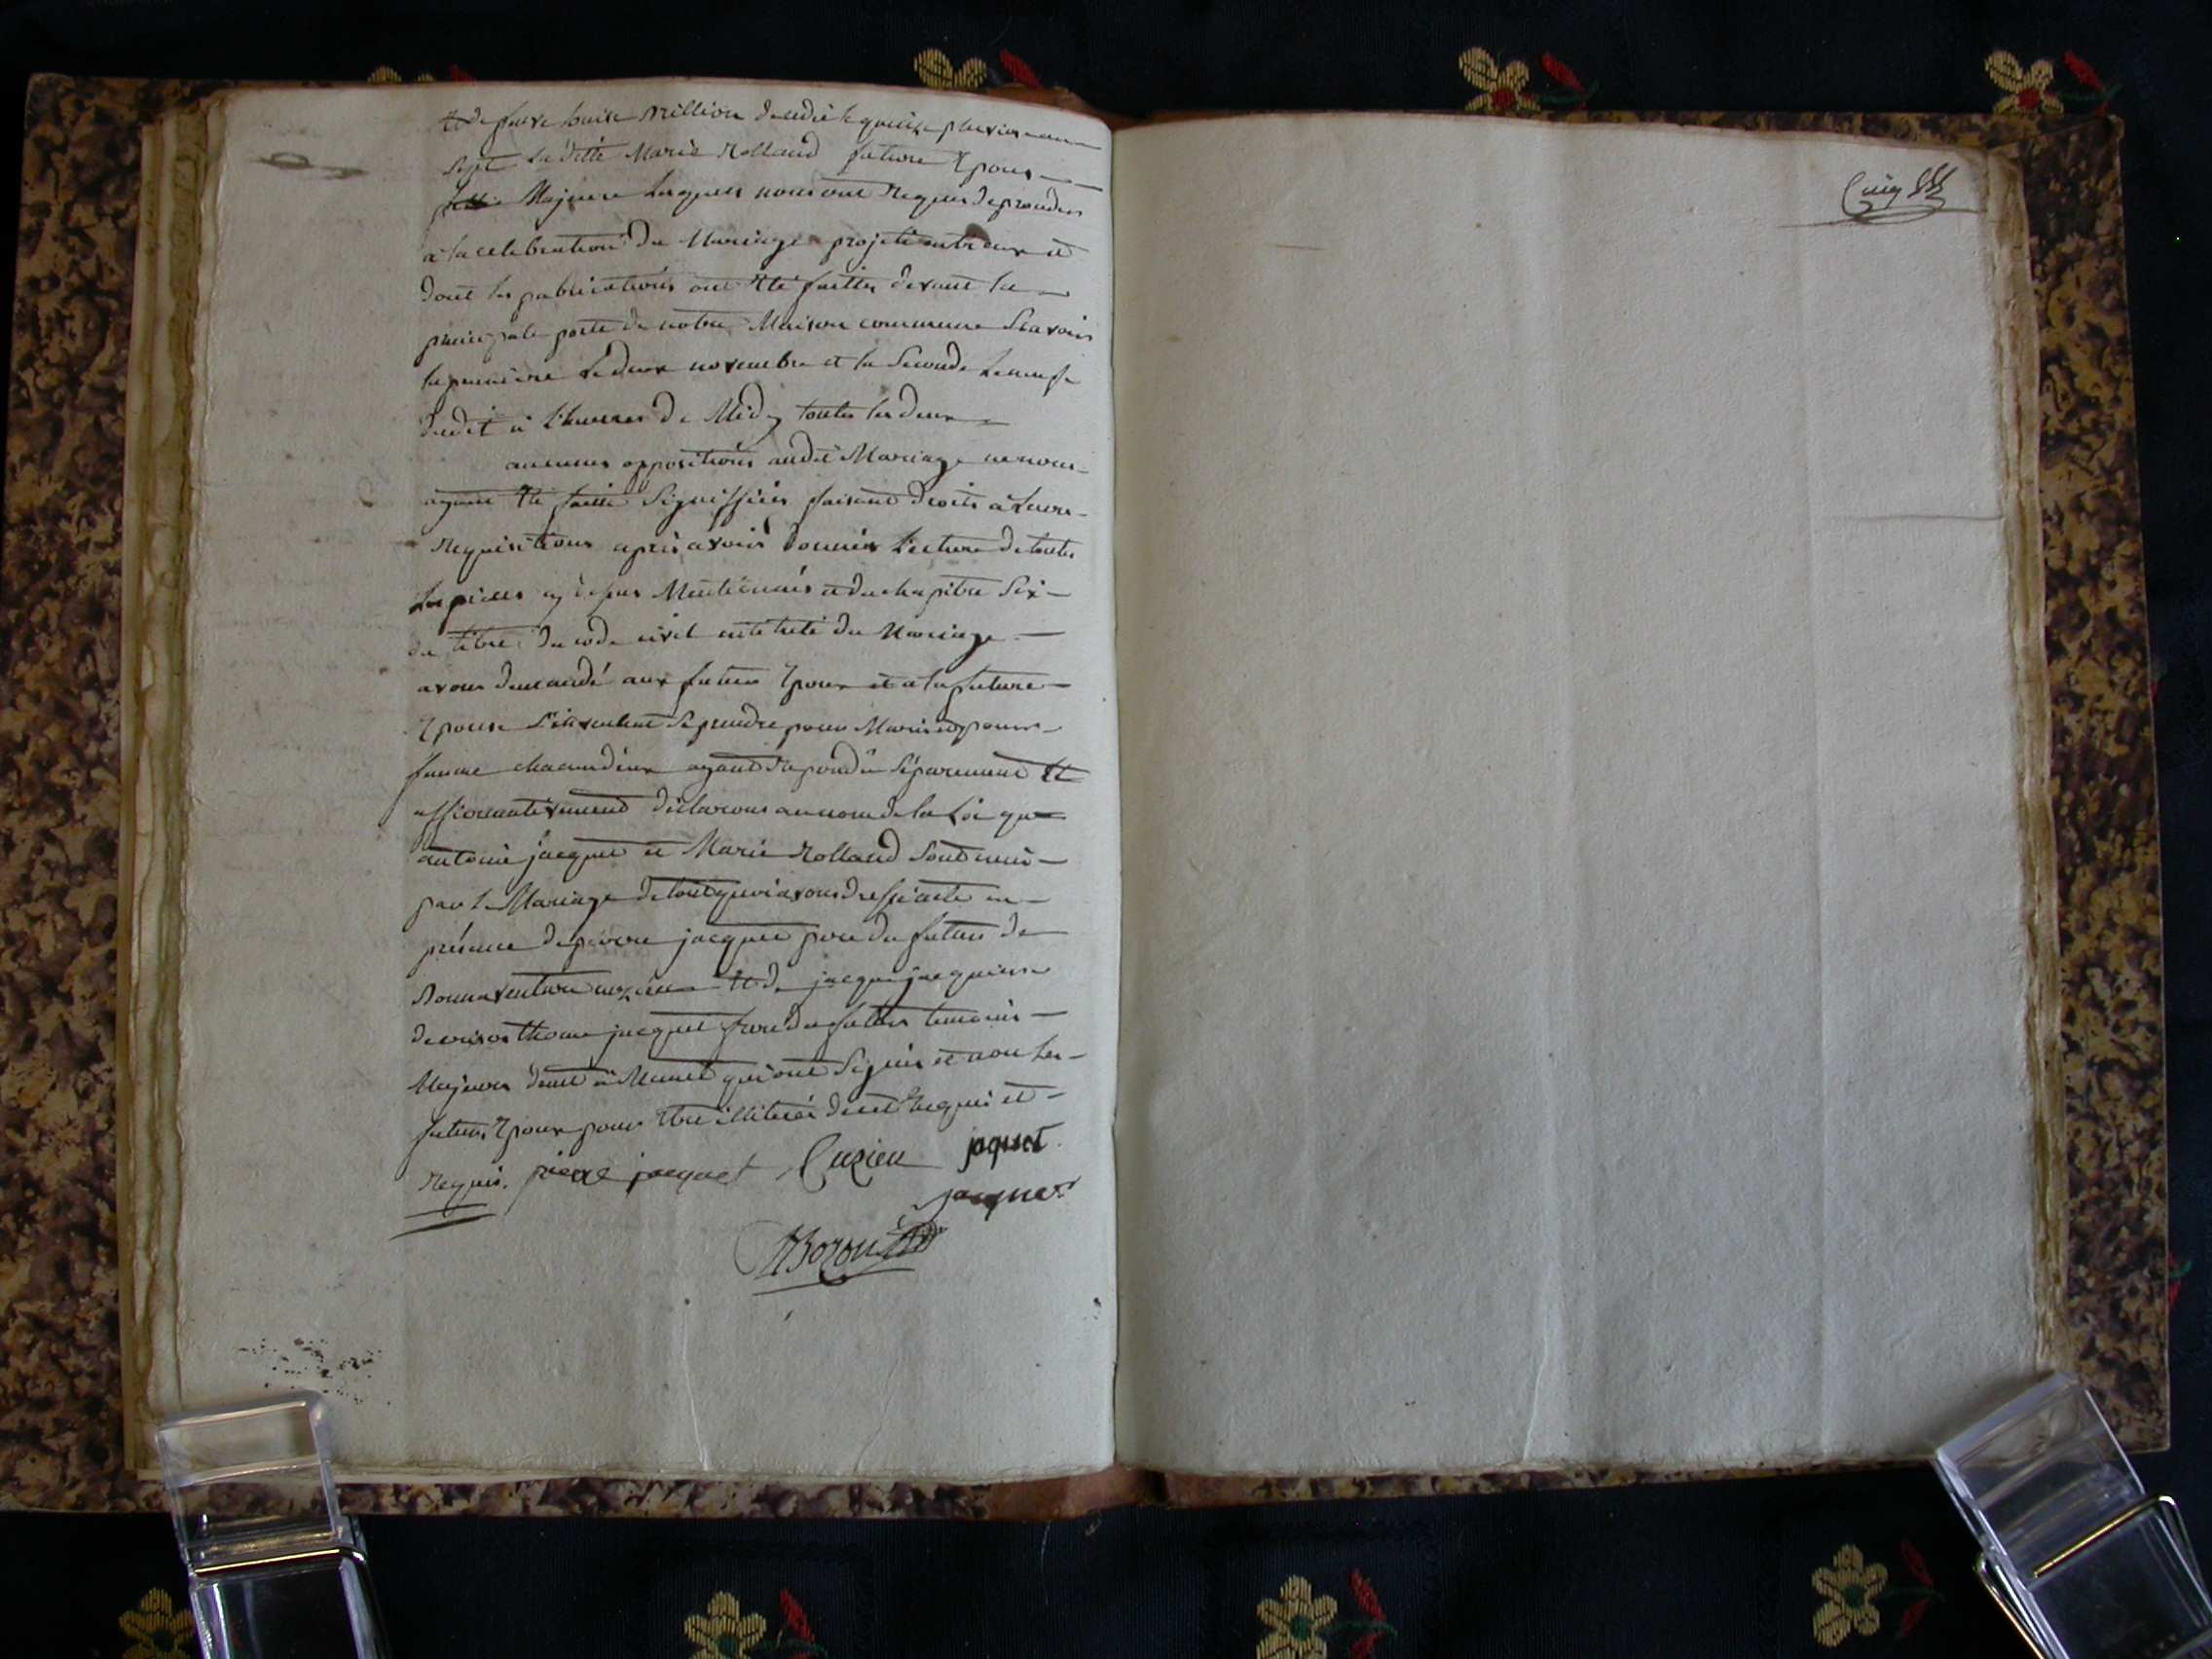 sept la ditte Marie Rolland future Epouse
Majeure Lesquels nous ont Requis de proceder
a la celebration du Mariage projeté entreux et
dont les publications ont Eté faittes devant la
principale porte de notre Maison commune Scavoir
la premiere Le deux novembre et la Seconde Le neuf
dudit à L'heure de Midy toutes les deux
aucunes oppositions audit Mariage ne nous
ayant Eté faitte Signiffiées faisant droits a Leurs
Requisitions apres avoir donnés Lecture de toutes
Les pieces cy dessus Mentionnés et du chapitre Six
du titre du code civil intitulé du Mariage
avons demandé aux futur Epoux et a la future
Epouse S'ils veulent Se prendre pour Mari et pour
femme chacun d'eux ayant Repondû Séparement Et
affirmativement déclarons au nom de la Loi que
antoine jacquet et Marie Rolland Sont unis
par Le Mariage de tout quoi avons dressé acte en
présence de pierre jacquet pere du futur de
Bonnaventure cuzieu Et de jacque
thome jacquet frere du futur temoins
Majeurs qui ont Signés et non Les
futurs Epoux pour Etre illiterés de cet Enquis et
Requis. pierre jacquet Cuzieu jaquet
jacquet